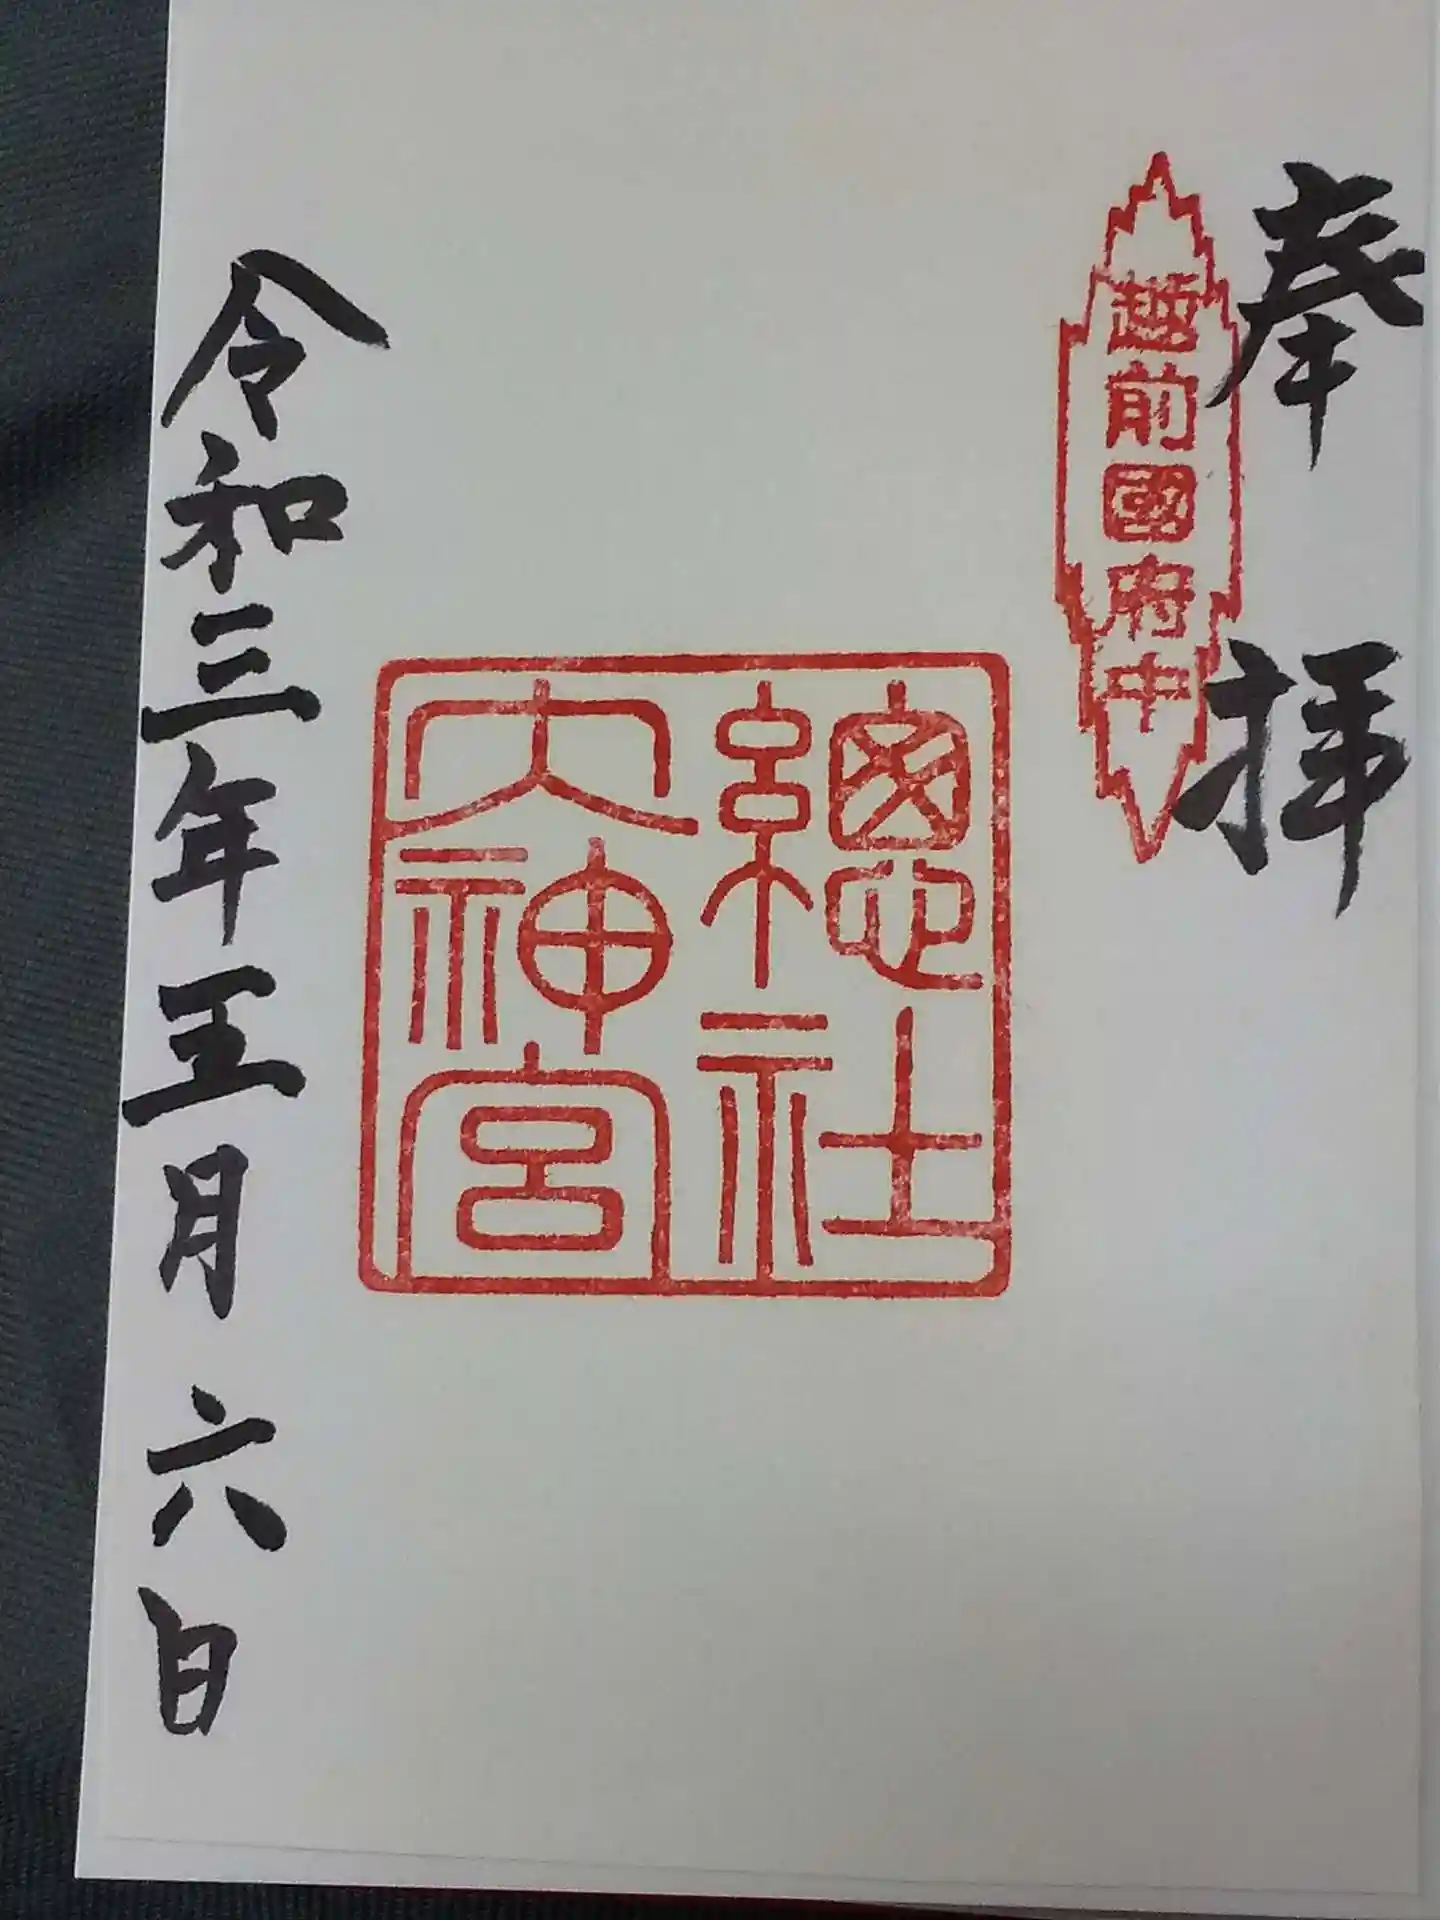 奉拝
越前國府中
總社
大神宮
令和三年五月六日